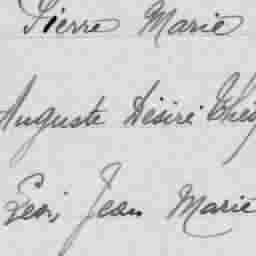 Pierre Marie
Auguste Désiré
Léon Jean Marie